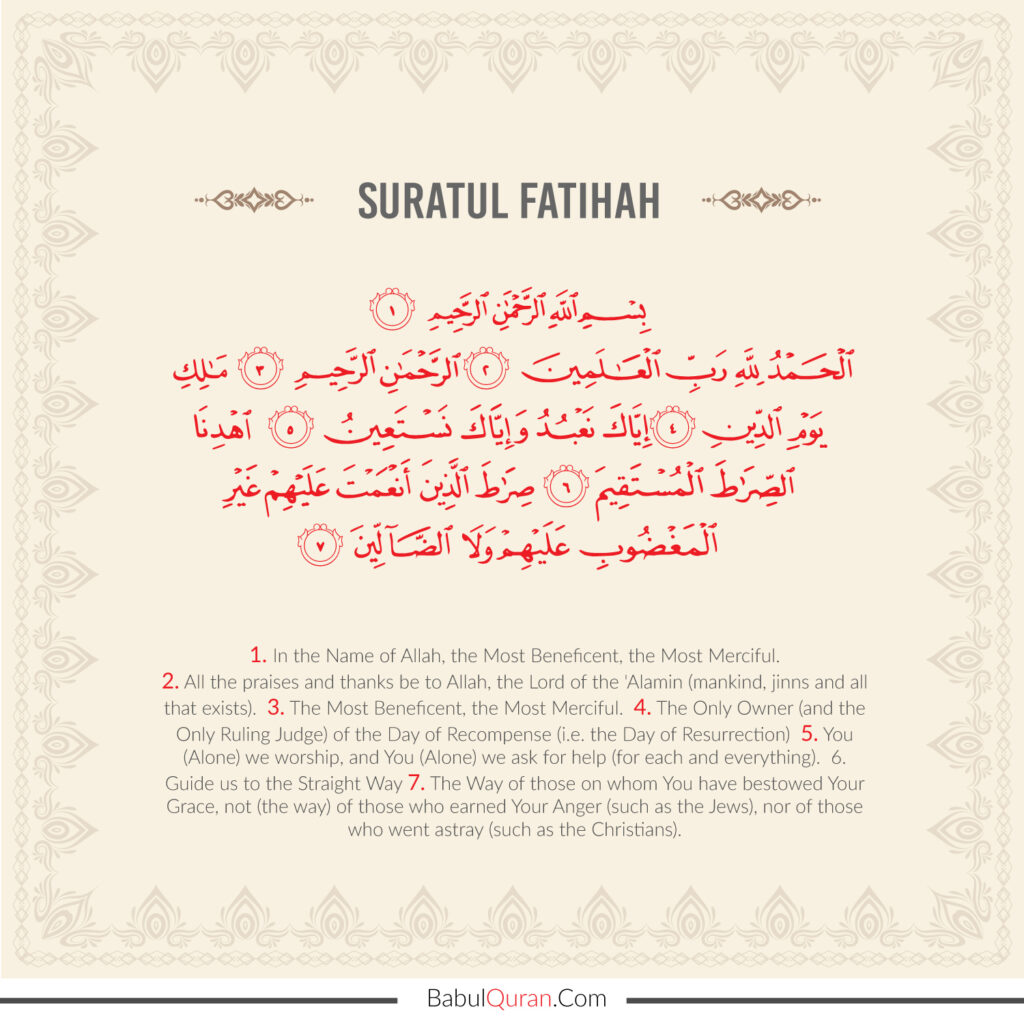 SURATUL FATIHAH
بِسْمِ ٱللَّهِ ٱلرَّحْمَٰنِ ٱلرَّحِيمِ ١
ٱلْحَمْدُ لِلَّهِ رَبِّ ٱلْعَٰلَمِينَ ٢ ٱلرَّحْمَٰنِ ٱلرَّحِيمِ ٣ مَٰلِكِ
يَوْمِ ٱلدِّينِ ٤ إِيَّاكَ نَعْبُدُ وَإِيَّاكَ نَسْتَعِينُ ٥ ٱهْدِنَا
ٱلصِّرَٰطَ ٱلْمُسْتَقِيمَ ٦ صِرَٰطَ ٱلَّذِينَ أَنْعَمْتَ عَلَيْهِمْ غَيْرِ
ٱلْمَغْضُوبِ عَلَيْهِمْ وَلَا ٱلضَّآلِّينَ ٧
1. In the Name of Allah, the Most Beneficent, the Most Merciful.
2. All the praises and thanks be to Allah, the Lord of the 'Alamin (mankind, jinns and all
that exists). 3. The Most Beneficent, the Most Merciful. 4. The Only Owner (and the
Only Ruling Judge) of the Day of Recompense (i.e. the Day of Resurrection) 5. You
(Alone) we worship, and You (Alone) we ask for help (for each and everything). 6.
Guide us to the Straight Way 7. The Way of those on whom You have bestowed Your
Grace, not (the way) of those who earned Your Anger (such as the Jews), nor of those
who went astray (such as the Christians).
BabulQuran.Com